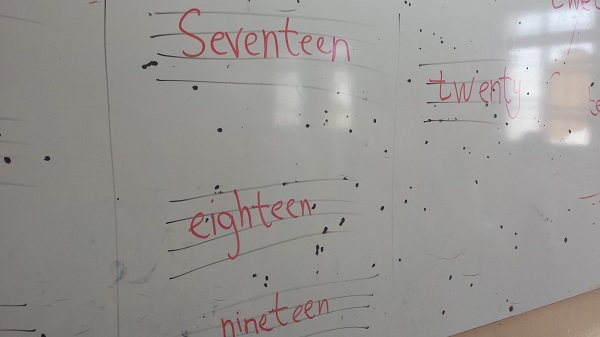 Seventeen
eighteen
nineteen
twenty